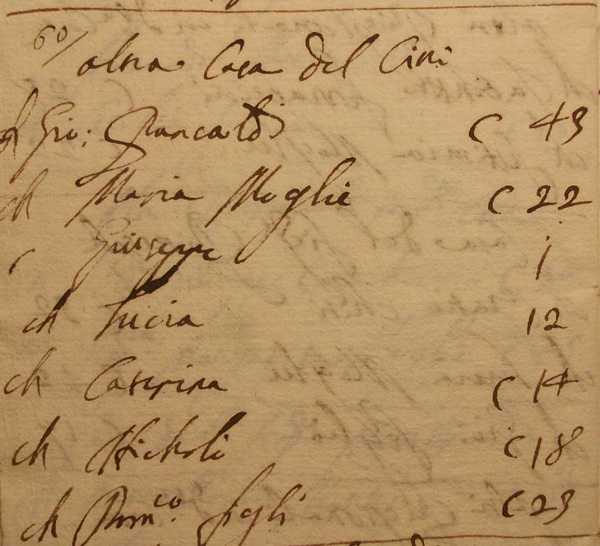 60/ altra Casa del Cini
Gio: C 43
ch Maria Moglie C 22
c Giuseppe 1
ch Lucia 12
ch Caterina C 14
ch Nicholò C 18
ch Dom.co figli C 23